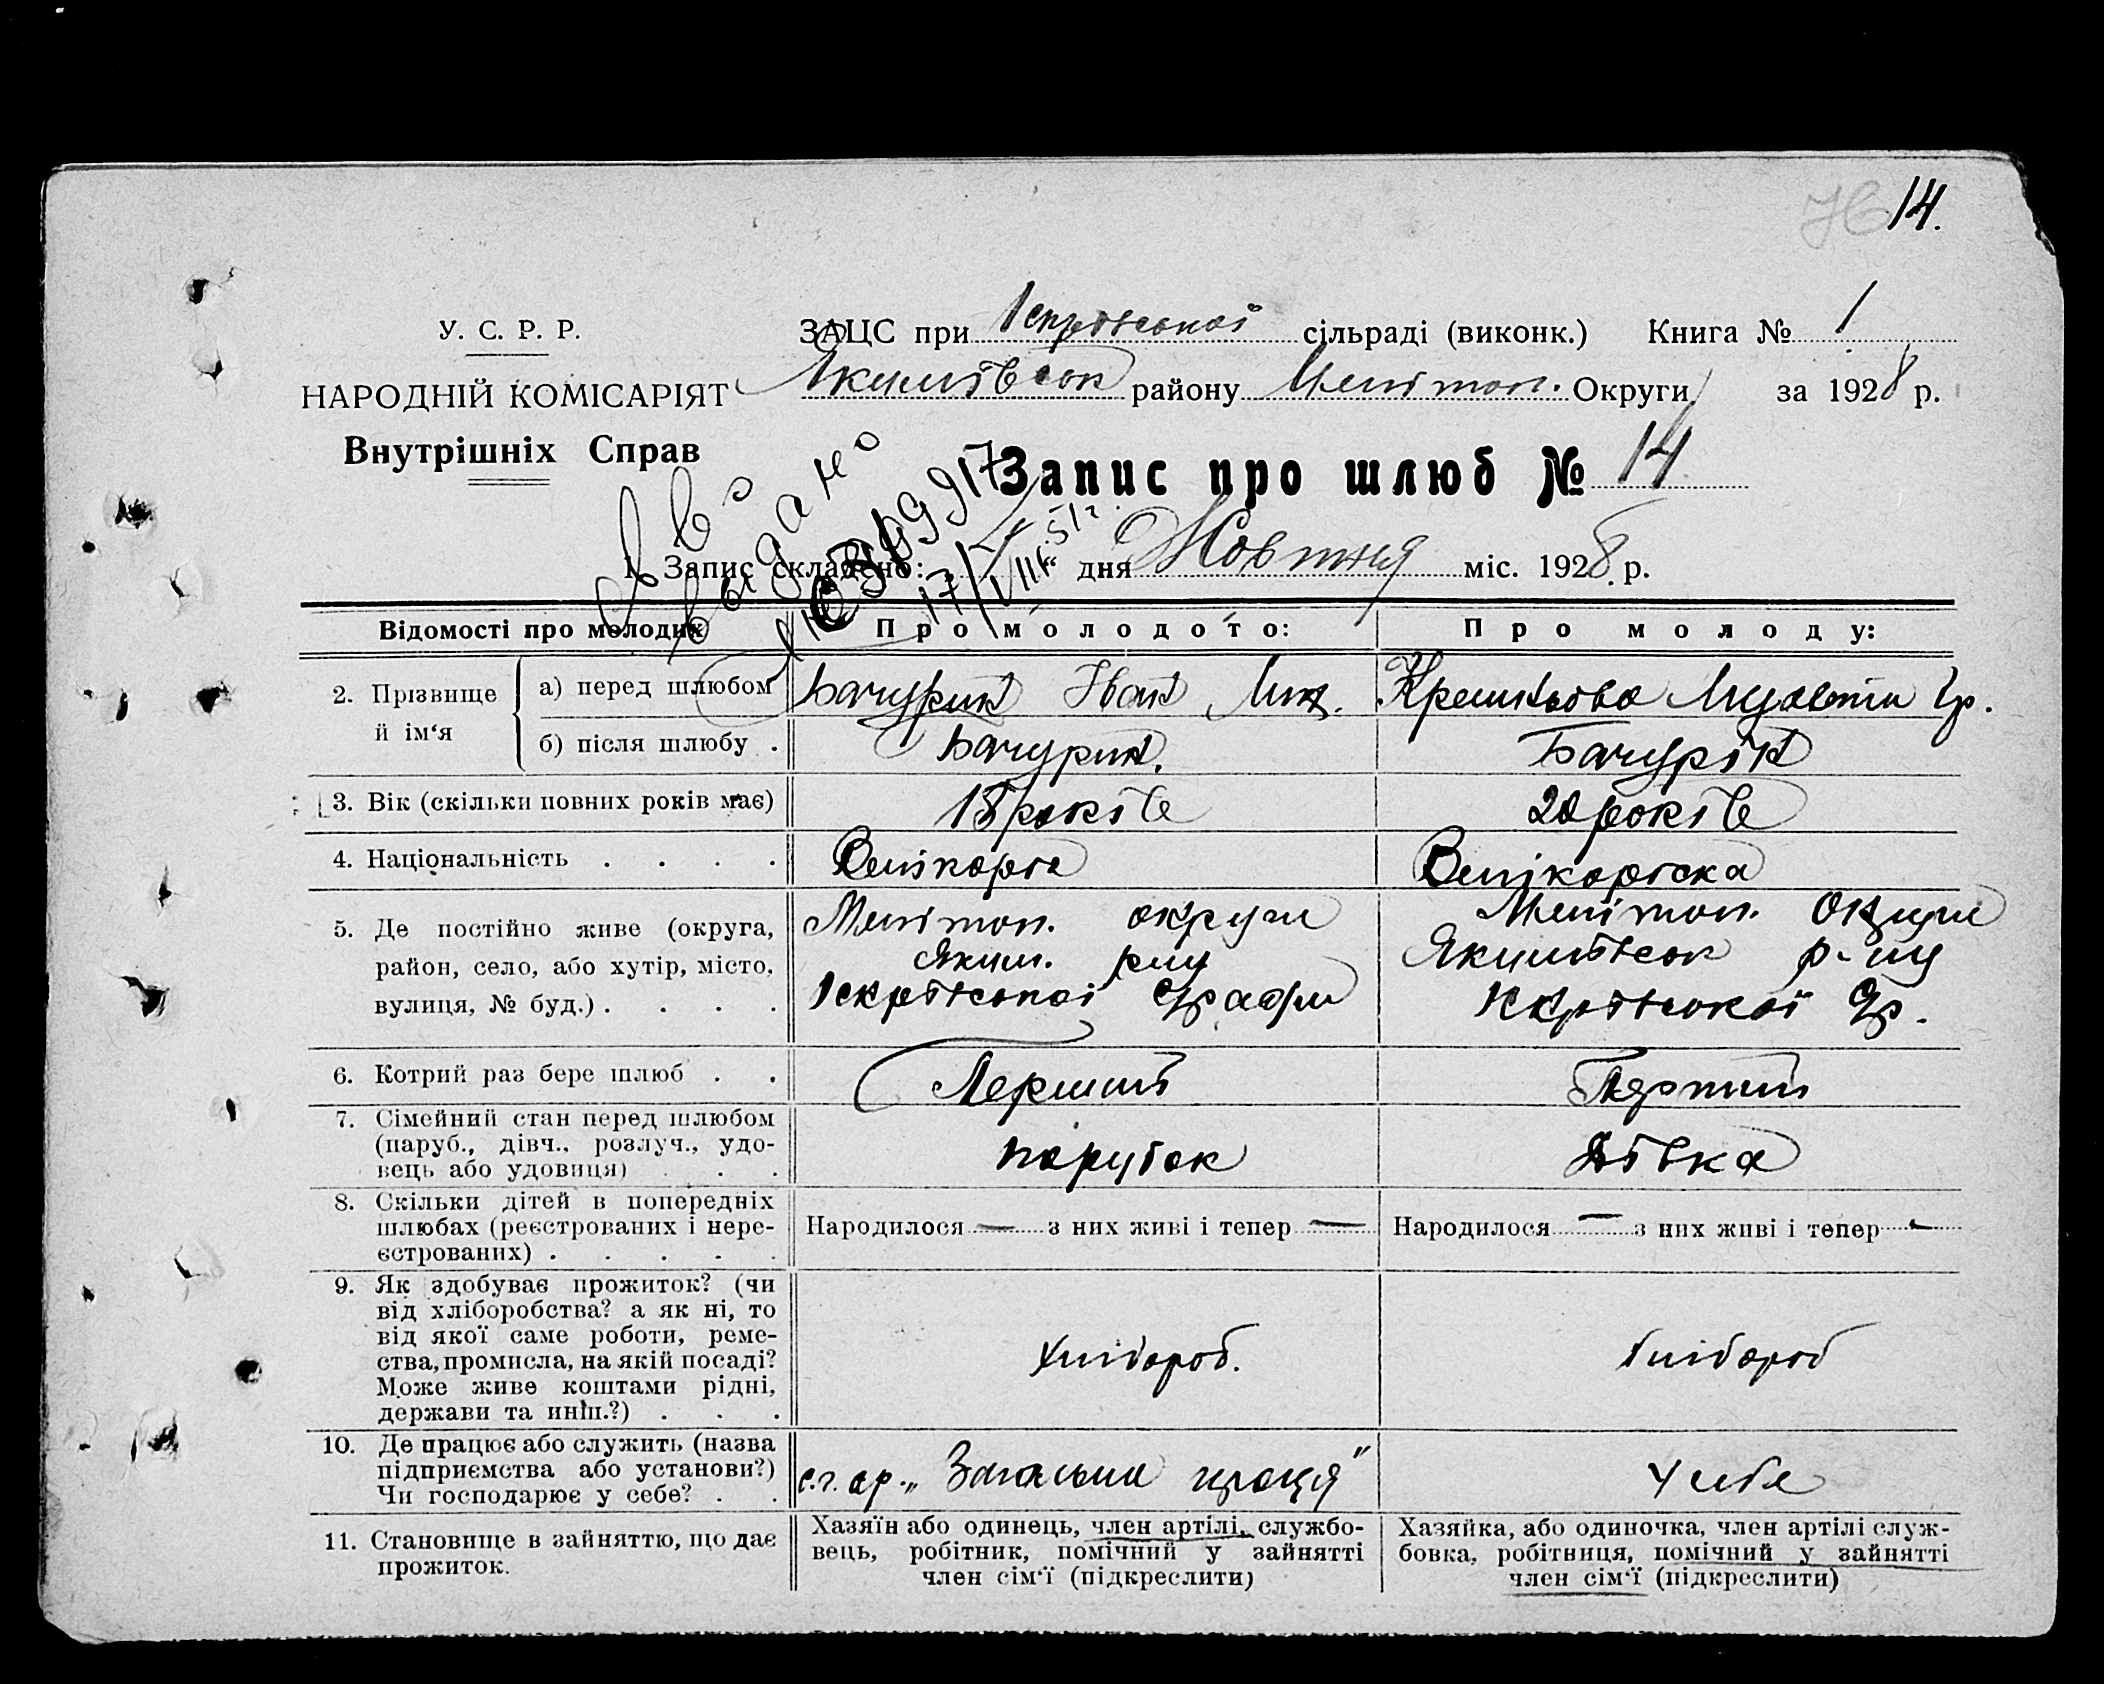 76 14.
У. С. Р. Р.
ЗАЦС при Іскрівської сільраді (виконк.) Книга № 1
НАРОДНІЙ КОМІСАРІЯТ
Якимівськ району Мелітоп. Округи за 1928 р.
Внутрішніх Справ
Запис про шлюб № 14
1. Запис складено: дня Жовтня міс. 1928 р.
Відомості про молодих Про молодого: Про молоду:
2. Прізвище й ім‘я
а) перед шлюбом Бачурин Іван Мих.
б) після шлюбу . Бачурин. Бачурін
3. Вік (скільки повних років має) 18 років 20 років
4. Національність . . . . Велікорос Велікоросска
5. Де постійно живе (округа, Мелітоп. округи Мелітоп. Округи
район, село, або хутір, місто, Яким. р-ну Якимівськ р-ну
вулиця, № буд.) . . . . Іскрівської Іскрівської
6. Котрий раз бере шлюб . . Перший Перший
7. Сімейний стан перед шлюбом
(паруб., дівч., розлуч., удо-
вець або удовиця) . . . парубок Дівка
8. Скільки дітей в попередніх
шлюбах (реєстрованих і нере-
єстрованих) . . . . .
Народилося — з них живі і тепер — Народилося — з них живі і тепер -
9. Як здобуває прожиток? (чи
від хліборобства? а як ні, то
від якої саме роботи, реме-
ства, промисла, на якій посаді?
Може живе коштами рідні,
держави та инш.?) . . .
Хлібороб. Хлібороб
10. Де працює або служить (назва
підприємства або установи?)
Чи господарює у себе? . .
с.г. ар. „Загальна праця" У себе
11. Становище в зайняттю, що дає
прожиток.
Хазяїн або одинець, член артілі, службо-
вець, робітник, помічний у зайнятті
член сім‘ї (підкреслити)
Хазяйка, або одиночка, член артілі служ-
бовка, робітниця, помічний у зайнятті
член сім‘ї (підкреслити)